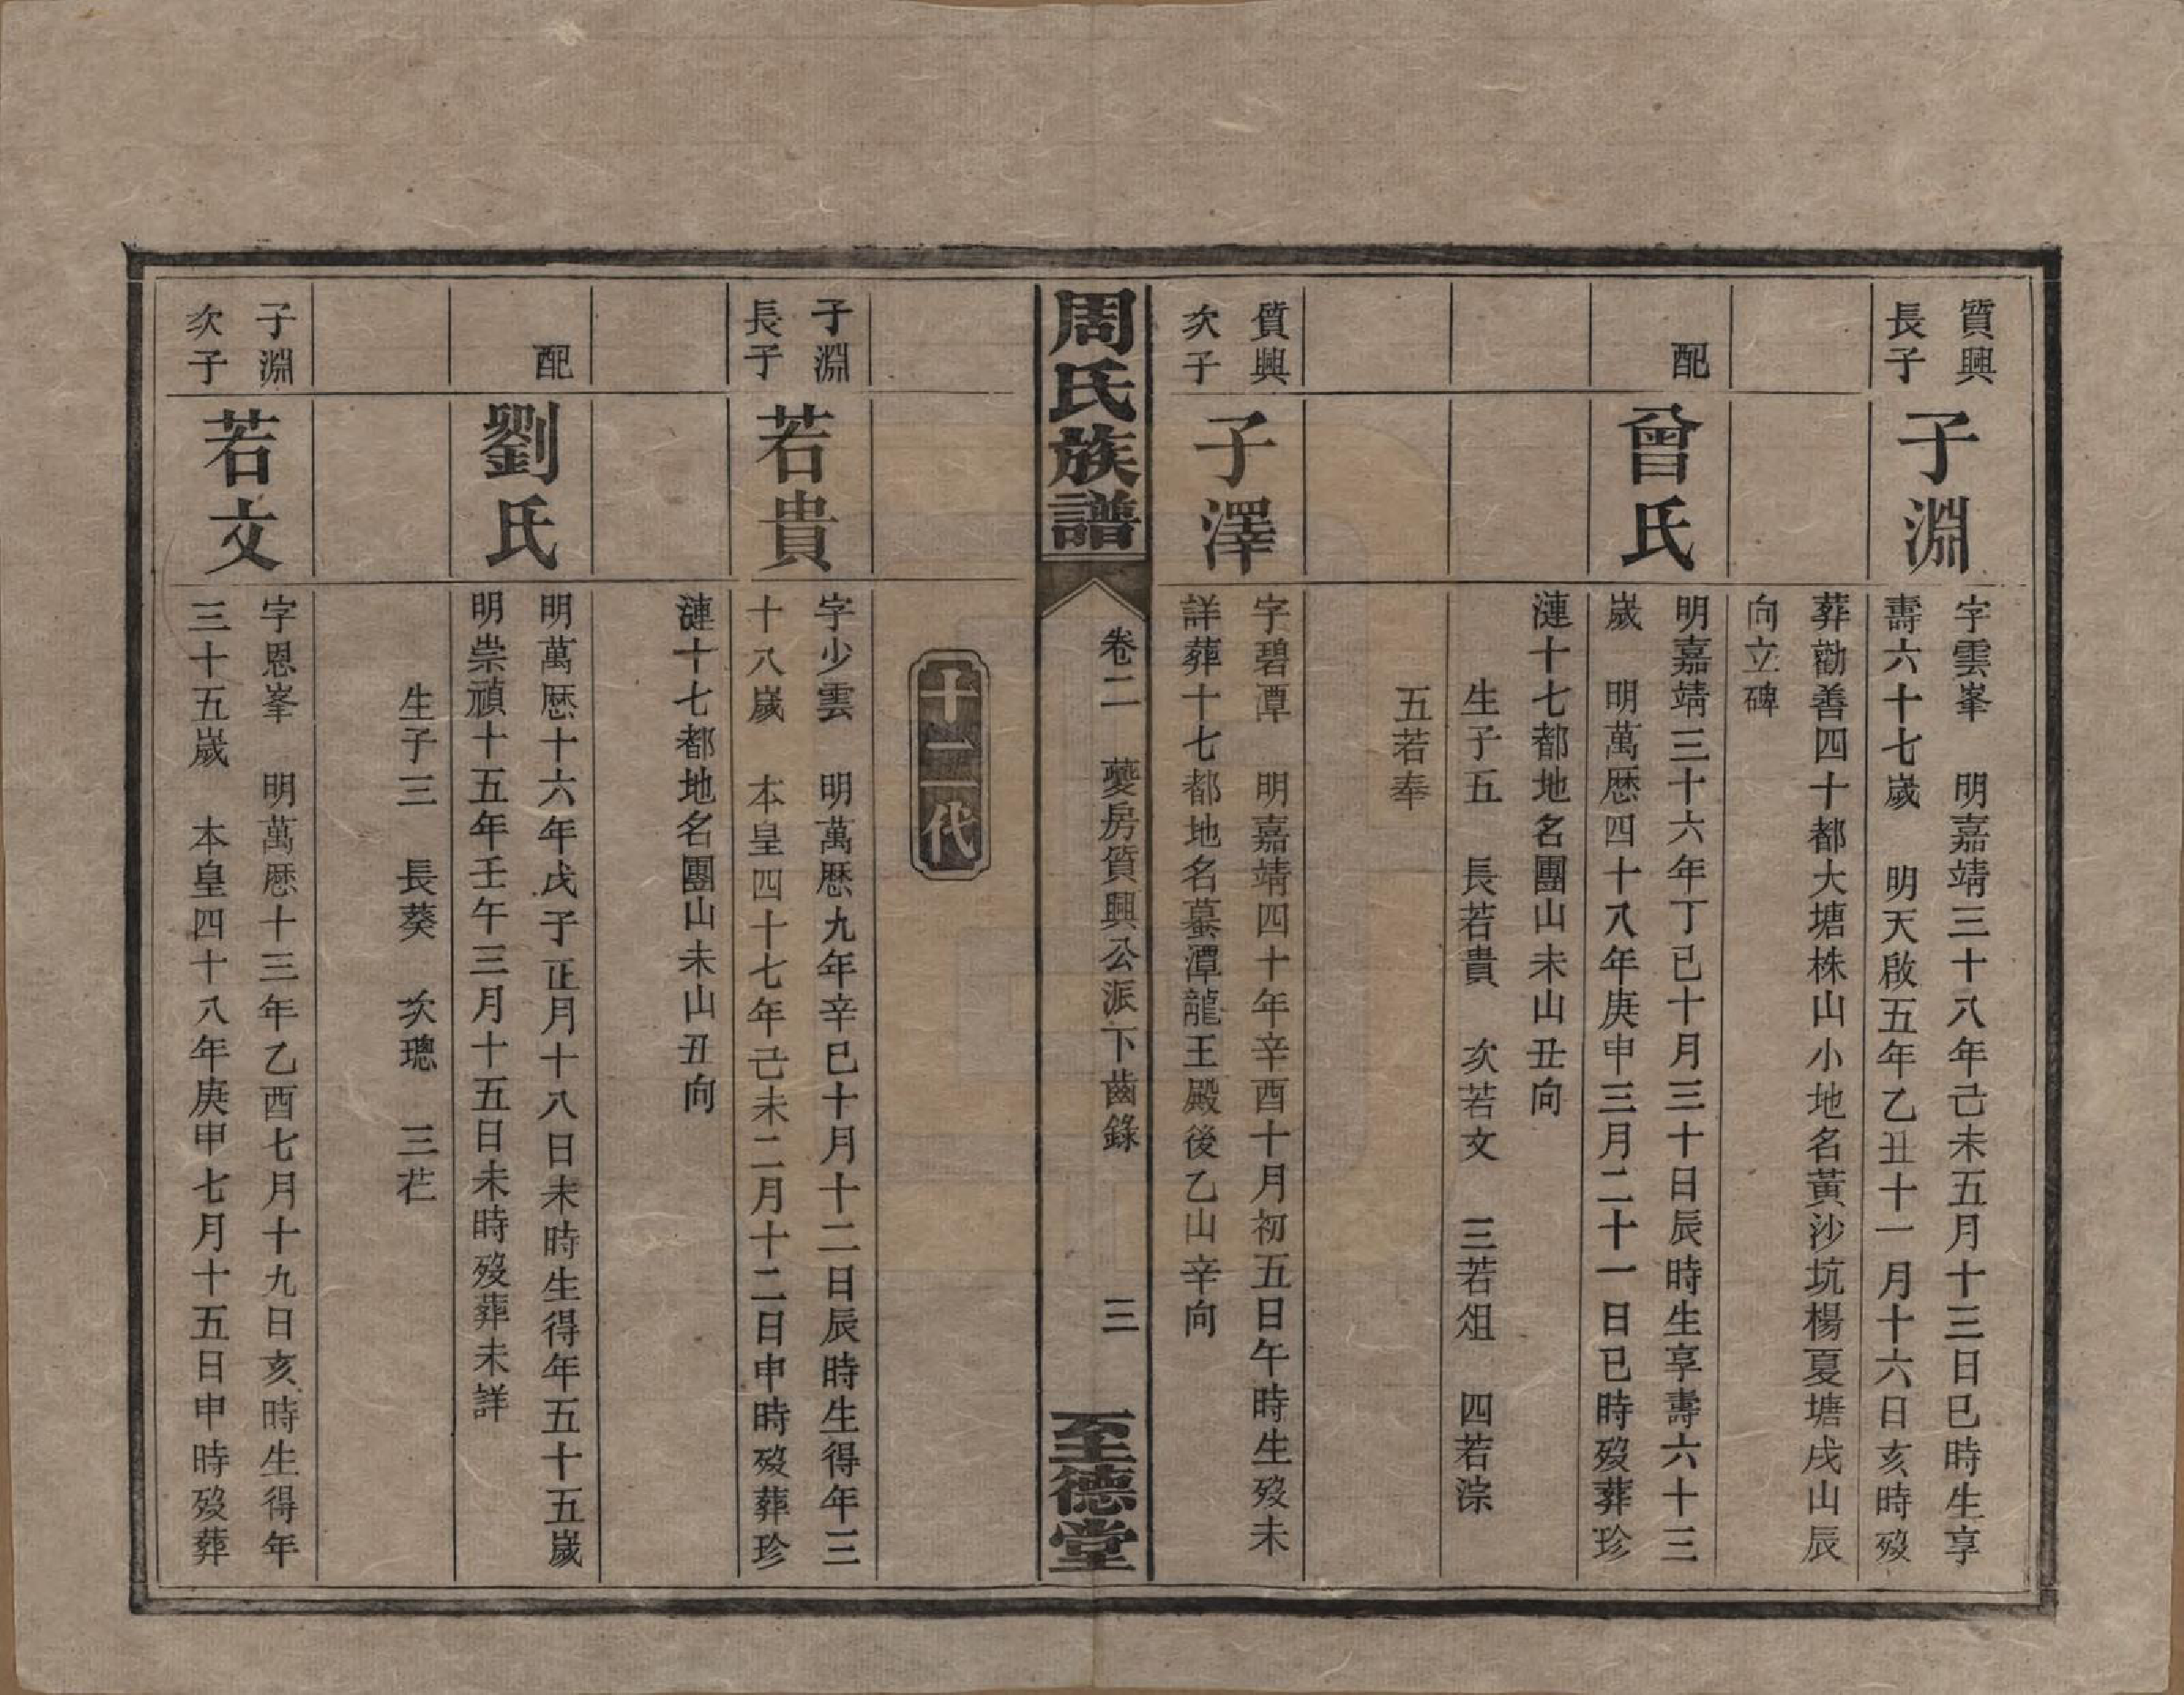 質興
長子
子淵
字雲峯　明嘉靖三十八年己未五月十三日巳時生享
壽六十七歲　明天啟五年乙丑十一月十六日亥時歿
葬勸善四十都大塘株山小地名黃沙坑楊夏塘戌山辰
向立碑
配
曾氏
明嘉靖三十六年丁巳十月三十日辰時生享壽六十三
歲　明萬厯四十八年庚申三月二十一日巳時歿葬珍
漣十七都地名團山未山丑向
生子五　長若貴　次若文　三若俎　四若淙
五若奉
質興
次子
子澤
字碧潭　明嘉靖四十年辛酉十月初五日午時生歿未
詳葬十七都地名墓潭龍王殿後乙山辛向
周氏族譜
卷二　夔房質興公派下齒錄　三
至德堂
十二代
子淵
長子
若貴
字少雲　明萬厯九年辛巳十月十二日辰時生得年三
十八歲　本皇四十七年己未二月十二日申時歿葬珍
漣十七都地名團山未山丑向
配
劉氏
明萬厯十六年戊子正月十八日未時生得年五十五歲
明崇禎十五年壬午三月十五日未時歿葬未詳
生子三　長葵　次璁　三芢
子淵
次子
若文
字恩峯　明萬厯十三年乙酉七月十九日亥時生得年
三十五歲　本皇四十八年庚申七月十五日申時歿葬